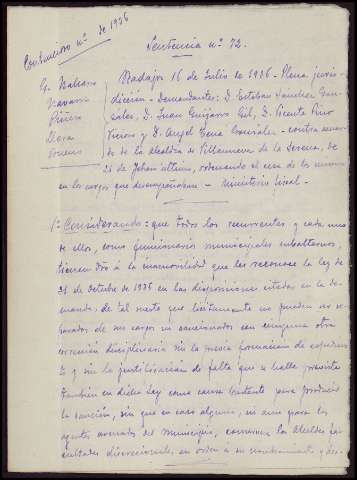 Contencioso nº de 1936
Sentencia nº 72.
G. Mahan
Navarro
Piñero
Llera
Badajoz 16 de Julio de 1936 - Plena juris-
dicción - Demandantes: D. Esteban Sánchez Gon-
zález, D. Juan Guisado Gil, D. Vicente Pino
y D. Angel Tena González - contra acuer-
do de la Alcaldía de Villanueva de la Serena, de
21 de Febrero último, ordenando el cese de los mismos
en los cargos que desempeñaban - Ministerio fiscal -
1º Considerando: que todos los recurrentes y cada uno
de ellos, como funcionarios municipales subalternos,
tienen dro á la inamovilidad que les reconoce la ley de
31 de Octubre de 1935 en las disposiciones citadas en la de-
manda, de tal suerte que lícitamente no pueden ser se-
parados de sus cargos ni sancionados con ninguna otra
corrección disciplinaria sin la previa formación de expedien-
te y sin la justificación de falta que se halle prevista
también en dicha Ley como causa bastante para producir
la sanción, sin que en caso alguno, ni aun para los
agentes armados del municipio, conserven los Alcaldes fa-
cultades discrecionales en orden á su nombramiento y